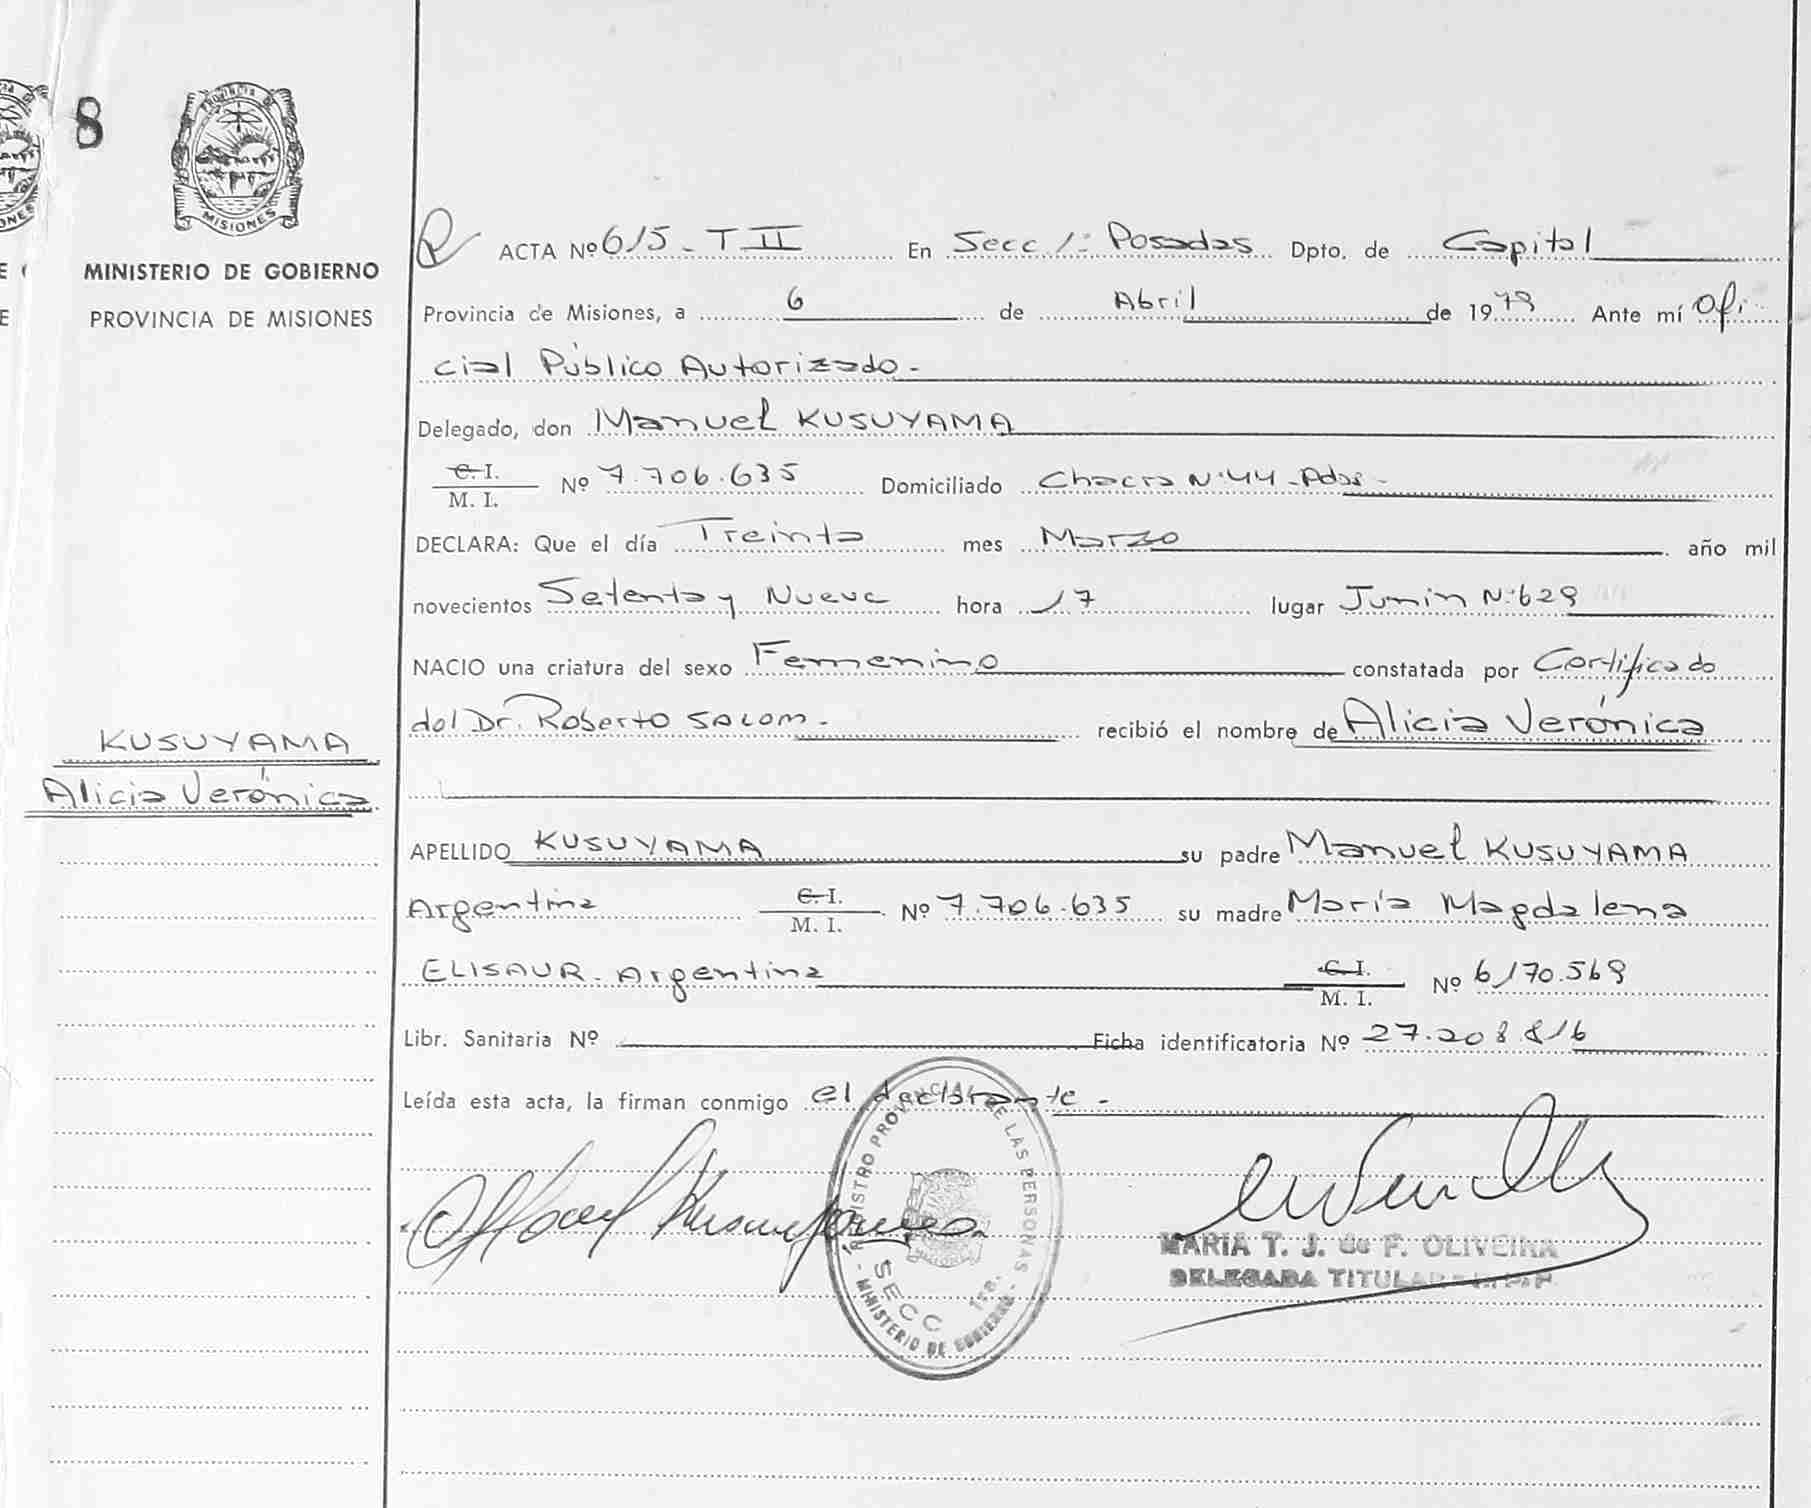 8
PROVINCIA DE
MISIONES
MINISTERIO DE GOBIERNO
PROVINCIA DE MISIONES
KUSUYAMA
Alicia Verónica
ACTA Nº 615 - T II En Secc 1ª Posadas Dpto. de Capital
Provincia de Misiones, a 6 de Abril de 1979 Ante mí Ofi
cial Público Autorizado -
Delegado, don Manuel KUSUYAMA
C. I.
M. I. Nº 7.706.635 Domiciliado Chacra Nº 44 - Pdas -
DECLARA: Que el día Treinta mes Marzo año mil
novecientos Setenta y Nueve hora 17 lugar Junin Nº 629
NACIO una criatura del sexo Femenino constatada por Certificado
del Dr. Roberto SALOM - recibió el nombre de Alicia Verónica
APELLIDO KUSUYAMA su padre Manuel KUSUYAMA
Argentina C. I. M. I. Nº 7.706.635 su madre María Magdalena
ELISAUR - Argentina C. I. M. I. Nº 6170.569
Libr. Sanitaria Nº Ficha identificatoria Nº 27.208.816
Leída esta acta, la firman conmigo el declarante -
REGISTRO PROVINCIAL DE LAS PERSONAS - MINISTERIO DE GOBIERNO -
SECC 1ra.
MARIA T. J. de F. OLIVEIRA
DELEGADA TITULAR